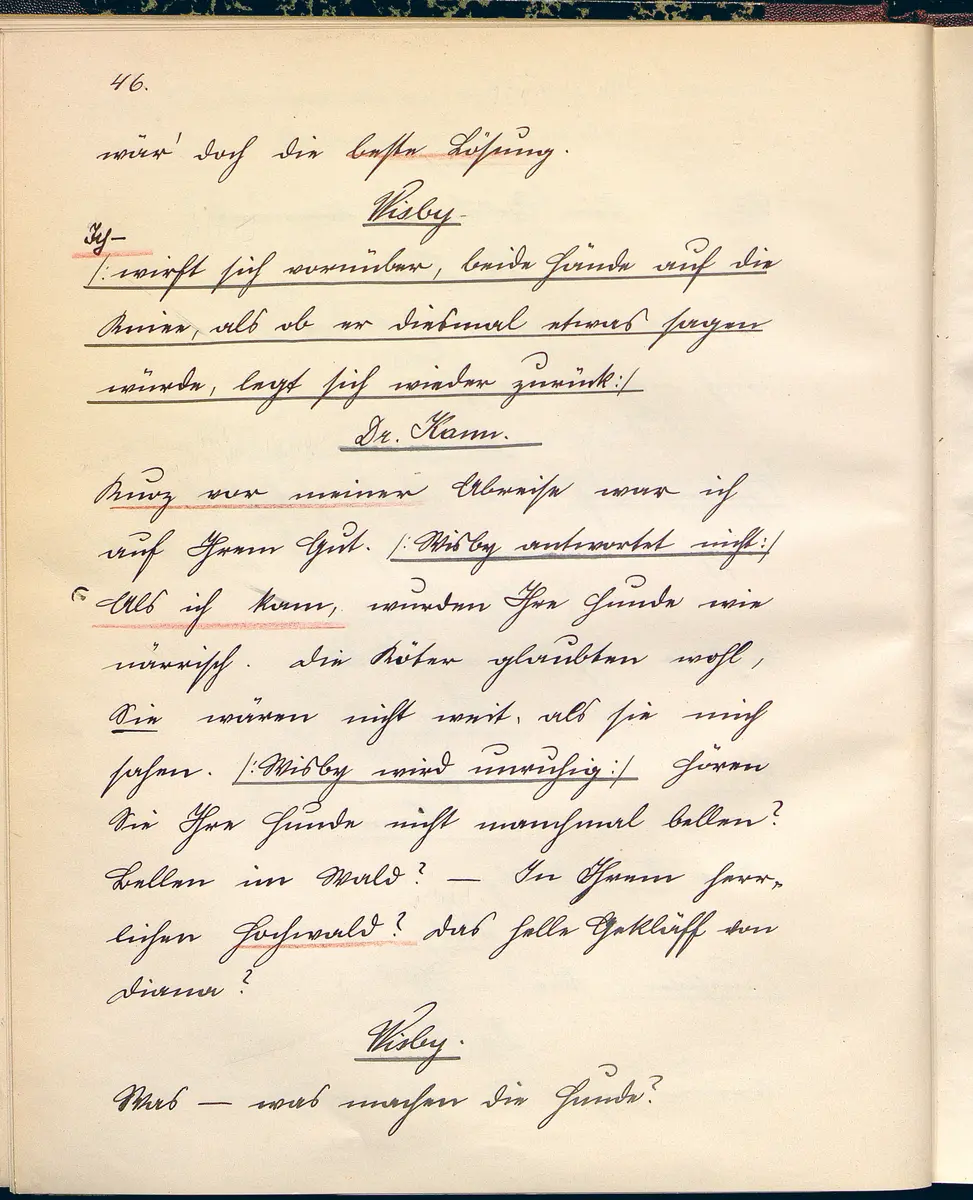 46.
wär' doch die beste Lösung.
Wisby.
Ich –
/: wirft sich vornüber, beide Hände auf die
Kniee, als ob er diesmal etwas sagen
würde, legt sich wieder zurück :/
Dr. Kann.
Kurz vor meiner Abreise war ich
auf Ihrem Gut. /: Wisby antwortet nicht :/
Als ich kam, wurden Ihre Hunde wie
närrisch. Die Köter glaubten wohl,
Sie wären nicht weit, als sie mich
sahen. /: Wisby wird unruhig :/ Hören
Sie Ihre Hunde nicht manchmal bellen?
Bellen im Wald? — In Ihrem herr-
lichen Hochwald? Das helle Gekläff von
Diana?
Wisby.
Was — was machen die Hunde?